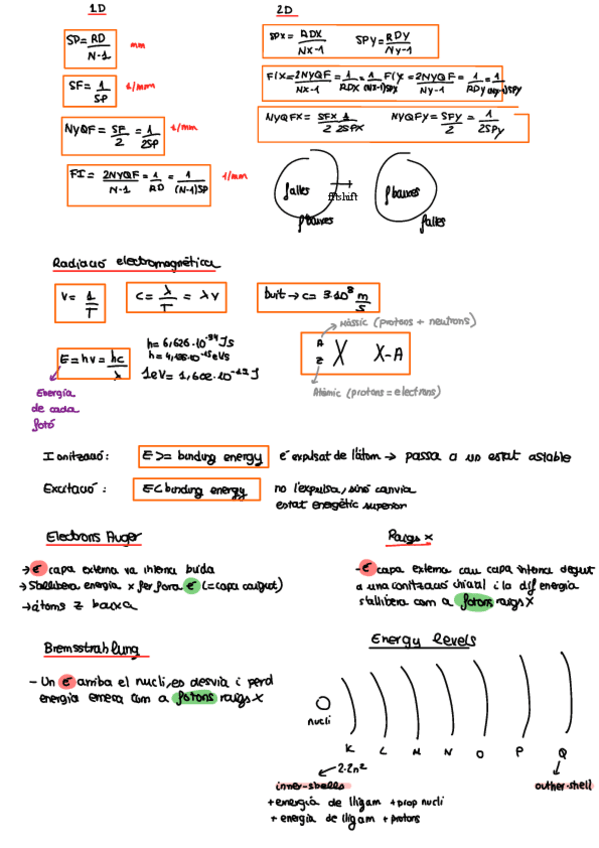 1D
SP = RD / N-1 mm
SF = 1 / SP 1/mm
NYQF = SF / 2 = 1 / 2SP 1/mm
FI = 2NYQF / N-1 = 1 / RD = 1 / (N-1)SP 1/mm
2D
SPX = RDX / NX-1 SPY = RDY / NY-1
FIX = 2NYQF / NX-1 = 1 / RDX = 1 / (NX-1)SPX FIY = 2NYQF / NY-1 = 1 / RDY = 1 / (NY-1)SPY
NYQFX = SFX / 2 1 / 2SPX NYQFY = SFY / 2 = 1 / 2SPY
falles fftshift fbaixes
fbaixes falles
Radiació electromagnètica
V = 1 / T C = λ / T = λV buit → C = 3·10⁸ m/s
E = hv = hc / λ
h = 6,626·10⁻³⁴ Js
Energia
de cada
fotó
Màssic (protons + neutrons)
A
Z X X-A
Atòmic (protons = electrons)
Ionització: E >= binding energy é expulsat de l'àtom → passa a un estat astable
Excitació: E < binding energy no l'expulsa, sinó canvia
estat energètic superior
Electrons Auger
→ é capa externa va interna buida
→ S'allibera energia x fer fora é (= capa caigut)
→ àtoms Z baixa
Raigs x
- é capa externa cau capa interna degut
a una ionització inicial i la dif energia
s'allibera com a fotons raigs X
Bremsstrahlung
- Un é arriba el nucli, es desvia i perd
energia emesa com a fotons raigs X
Energy levels
nucli
K L M N O P Q
2·2n²
inner-shells outher-shell
+ energia de lligam + prop nucli
+ energia de lligam + protons